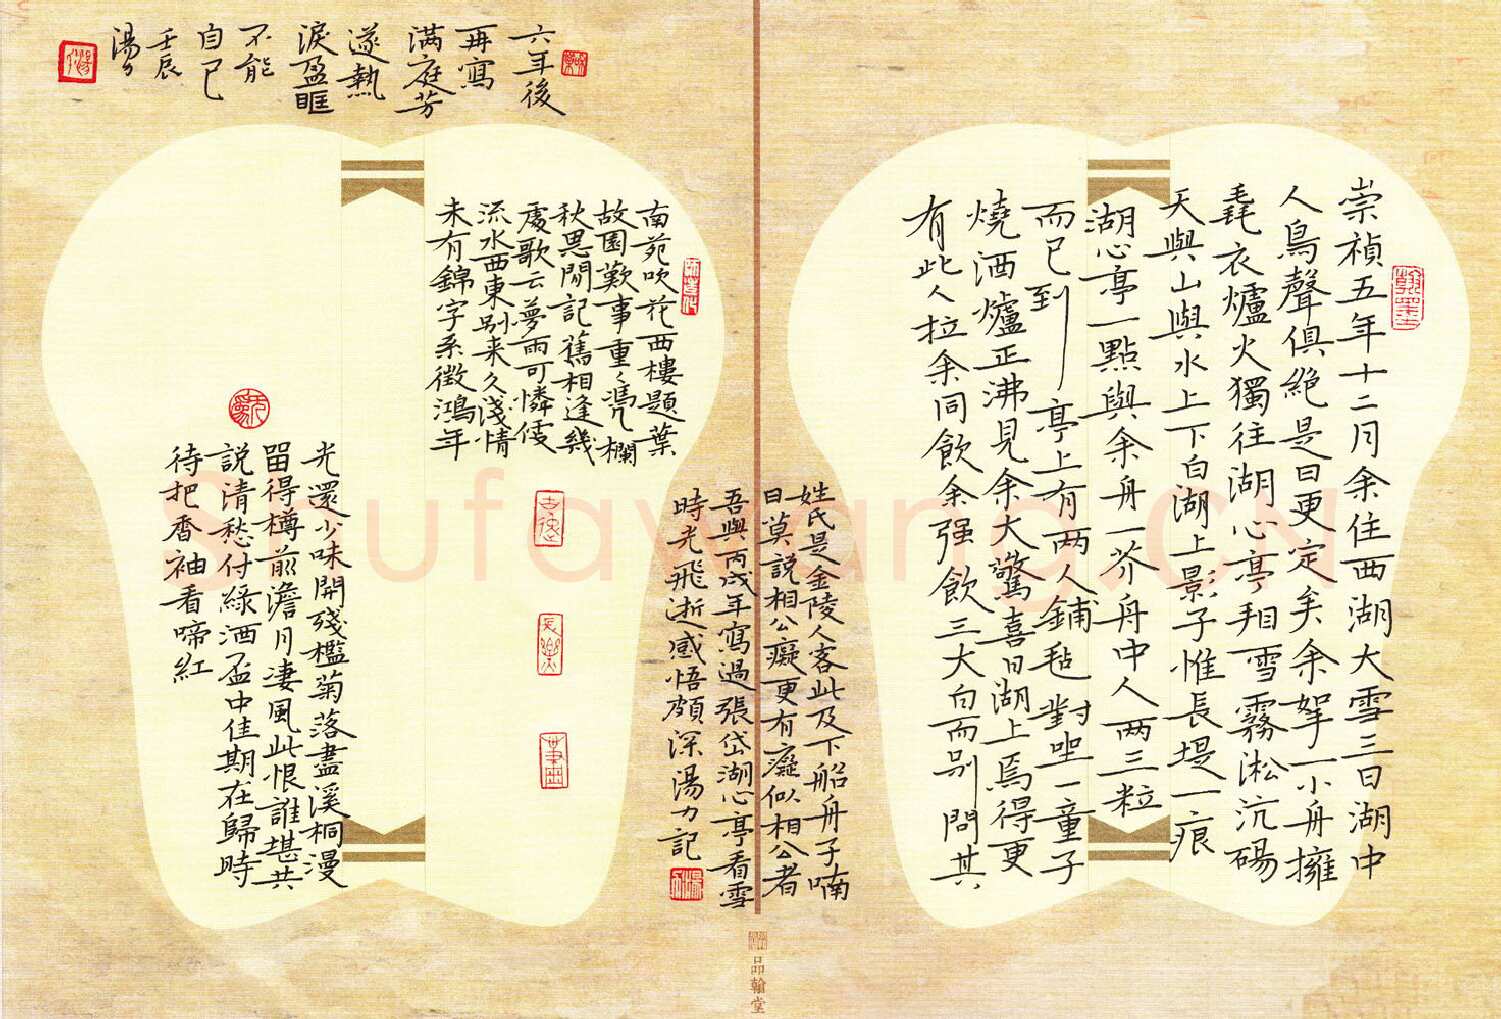 崇禎五年十二月余住西湖大雪三日湖中
人鳥聲俱絶是日更定矣余挐一小舟擁
毳衣爐火獨往湖心亭看雪霧淞沆碭
天與山與水上下白湖上影子惟長堤一痕
湖心亭一點與余舟一芥舟中人两三粒
而已到亭上有两人鋪毡對坐一童子
燒酒爐正沸見余大驚喜曰湖上焉得更
有此人拉余同飲余强飲三大白而别問其
姓氏是金陵人客此及下船舟子喃
曰莫説相公癡更有癡似相公者
吾與丙戌年寫過張岱湖心亭看雪
時光飛逝感悟頗深湯力記
南苑吹花西樓題葉
故園歎事重〻憑欄
秋思閒記舊相逢幾
處歌云夢雨可憐侫
流水西東别来久淺情
未有錦字系徴鴻年
光還少味開殘檻菊落盡溪桐漫
留得樽前澹月凄風此恨誰堪共
説清愁付緑酒盃中佳期在歸時
待把香袖看啼紅
六年後
再寫
满庭芳
遂熱
淚盈眶
不能
自已
壬辰
湯力
品翰堂
Shufawang.CN